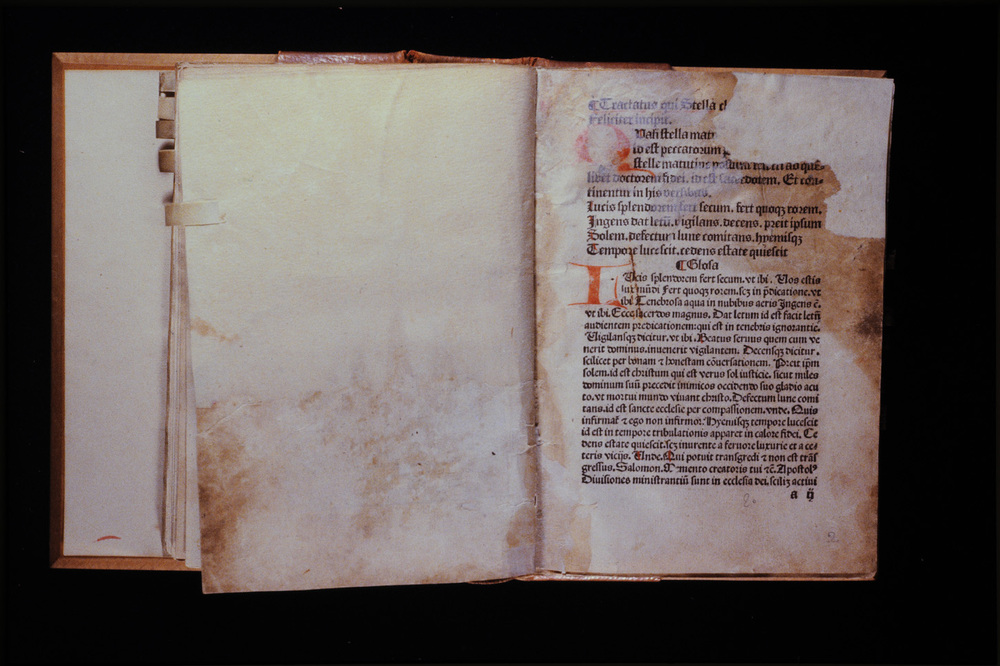 ¶Tractatus qui Stella cl
feliciter incipit.
Quasi stella matu
id est peccatorum
stelle matutine ad quē⸗
libet doctorem fidei, id est sacerdotem. Et con⸗
tinentur in his versibus.
Lucis splendorem fert secum. fert quoqꝫ rorem.
Ingens dat letū. vigilans. decens. preit ipsum
Solem. defectum lune comitans. hyemisqꝫ
Tempore lucescit. cedens estate quiescit
¶Glosa
LUcis splendorem fert secum. vt ibi. Vos estis
lux mūdi Fert quoqꝫ rorem. scꝫ in p̄dicatione. vt
ibi Tenebrosa aqua in nubibus aeris Ingens ē.
vt ibi. Ecce sacerdos magnus. Dat letum id est facit letū
audientem predicationem: qui est in tenebris ignorantie.
Uigilansqꝫ dicitur. vt ibi. Beatus seruus quem cum ve
nerit dominus. inuenerit vigilantem. Decensqꝫ dicitur.
scilicet per bonam ⁊ honestam cōuersationem. Preit ip̄m
solem. id est christum qui est verus sol iusticie. sicut miles
dominum suū precedit inimicos occidendo suo gladio acu
to. vt mortui mundo viuant christo. Defectum lune comi
tans. id est sancte ecclesie per compassionem. vnde. Quis
infirmat̄ ⁊ ego non infirmor. Hyemisqꝫ tempore lucescit
id est in tempore tribulationis apparet in calore fidei. Ce
dens estate quiescit. scꝫ inurente a feruore luxurie et a ce⸗
teris vicijs. Unde. Qui potuit transgredi ⁊ non est trās
gressus. Salomon. Memento creatoris tui ⁊c̄. Apostolꝰ
Diuisiones ministrantiū sunt in ecclesia dei. sciliꝫ actiui
a ij
2
2